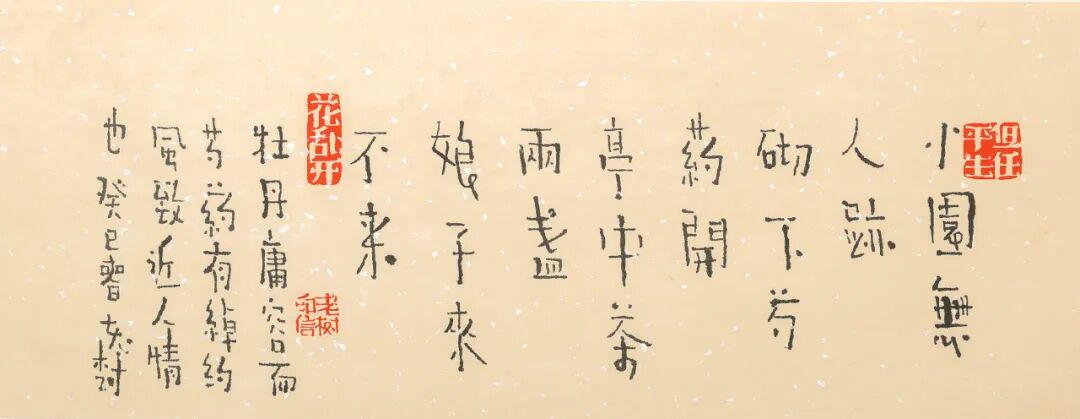 但任平生
小園無
人跡
砌下芍
葯開
亭中茶
兩盞
娘子來
不来
花乱开
牡丹庸容而
芍葯有綽約
風致近人情
也癸巳老樹
老树印信